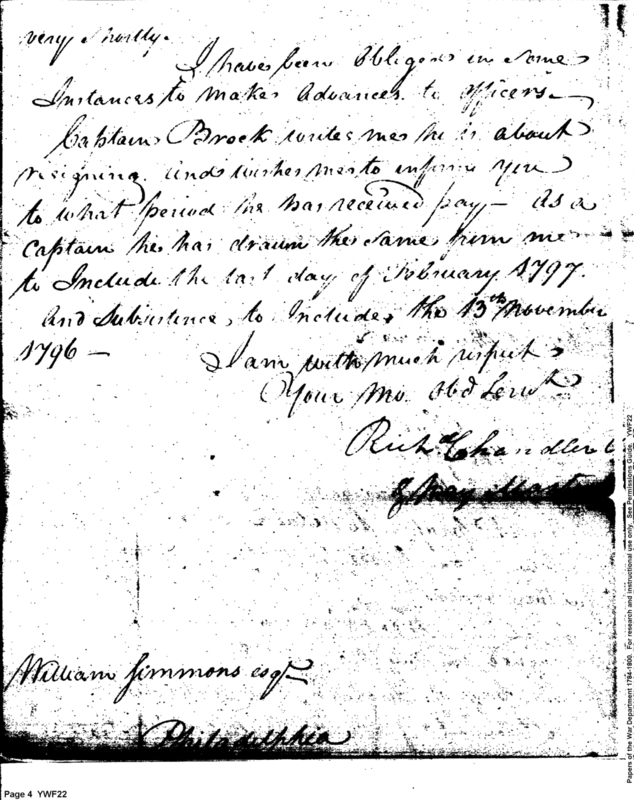 very shortly.
I have been obliged in some
Instances to make advances to officers—
Captain Brock writes me he is about
resigning and wishes me to inform you
to what period he has received pay— As a
Captain he has drawn the same from me
to Include the last day of February 1797.
and Subsistence, to Include, the 13th November
1796—
I am with much respect
Your Mo. Obd Servt
Richd Chandler
& Pay Master
William Simmons esqr
Philadelphia
Page 4 YWF22
Papers of the War Department 1784-1800. For research and instructional use only. See Permissions Guide. YWF22